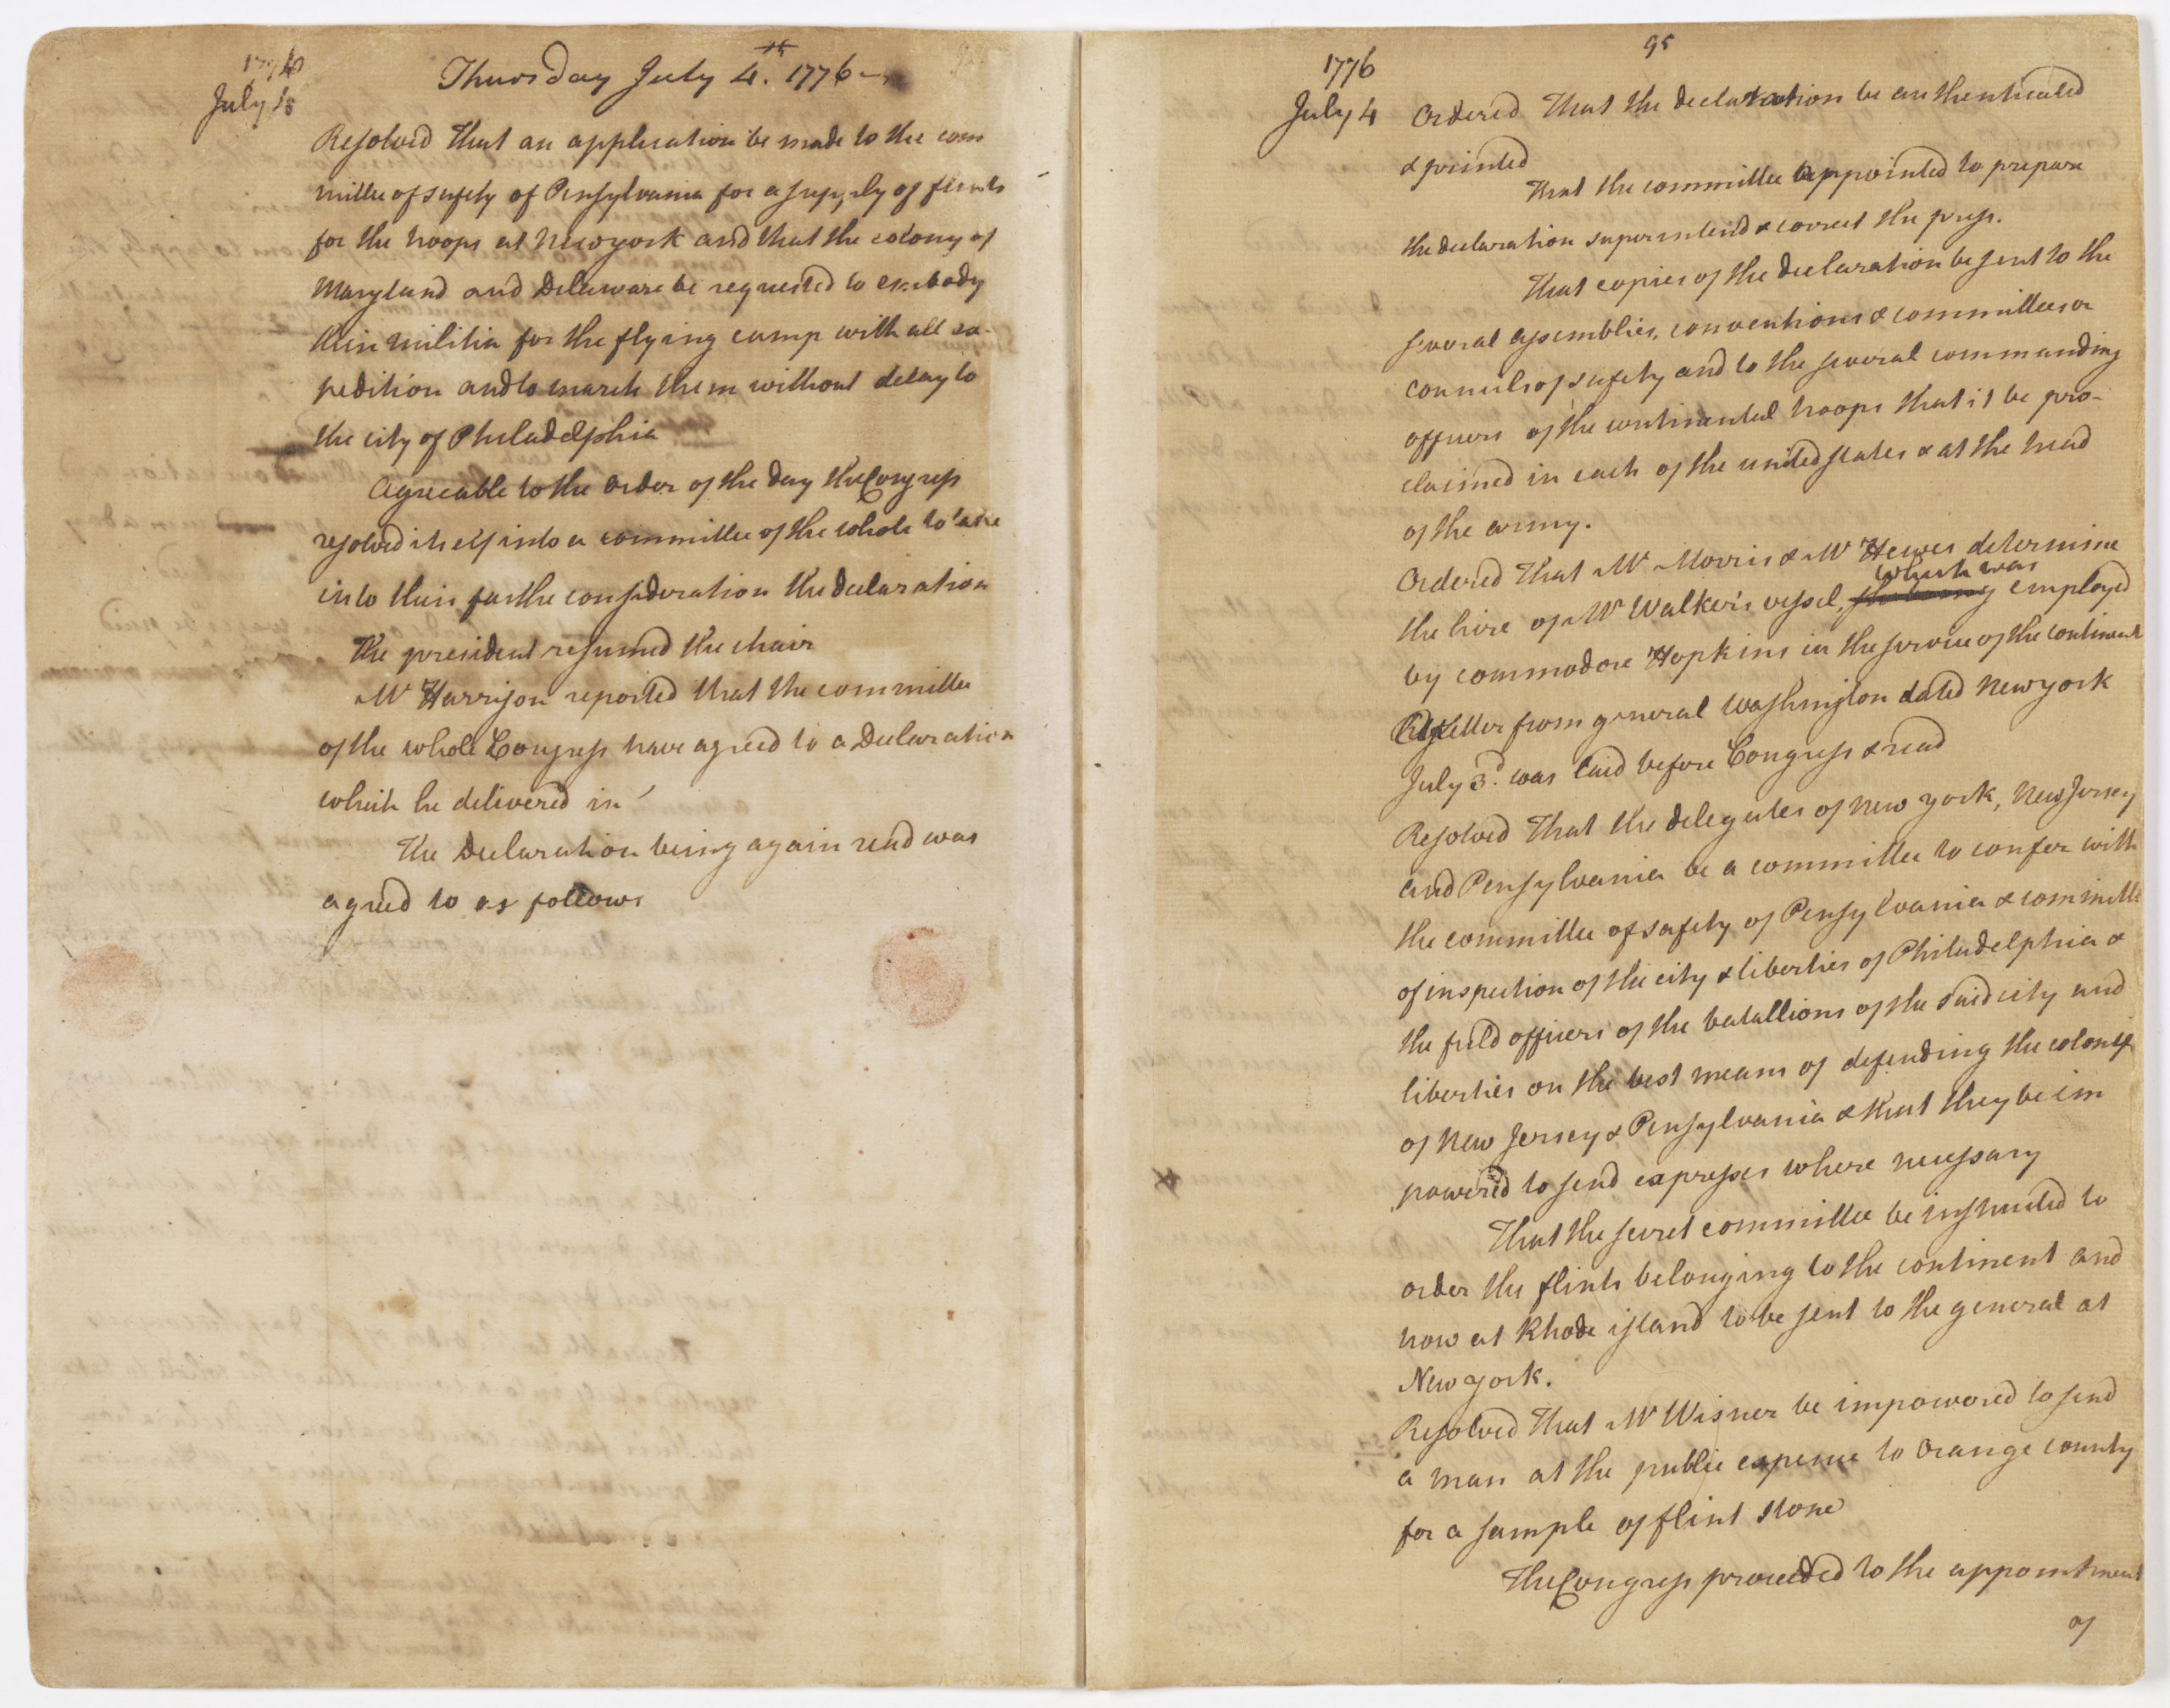 1776
July 4
Thursday July 4th. 1776
Resolved That an application be made to the com
mittee of safety of Pensylvania for a supply of flints
for the troops at New york and that the colony of
Maryland and Delaware be requested to embody
their militia for the flying camp with all ex-
pedition and to march them without delay to
the city of Philadelphia
Agreeable to the order of the day the Congress
resolved itself into a committee of the whole to take
into their farther consideration the declaration
The president resumed the chair
Mr Harrison reported that the committee
of the whole Congress have agreed to a Declaration
which he delivered in
The Declaration being again read was
agreed to as follows
95
1776
July 4
Ordered That the declaration be authenticated
& printed
That the committee appointed to prepare
the declaration superintend & correct the press.
That copies of the declaration be sent to the
several assemblies, conventions & committees or
councils of safety and to the several commanding
officers of the continental troops that it be pro-
claimed in each of the united states & at the head
of the army.
Ordered That Mr Morris & Mr Hewes determine
which was
the hire of Mr Walker's vessel, employed
by commodore Hopkins in the service of the continent
letter from general Washington dated New york
July 3d. was laid before Congress & read
Resolved That the delegates of new york, New Jersey
and Pensylvania be a committee to confer with
the committee of safety of Pensylvania & committee
of inspection of the city & liberties of Philadelphia &
the field officers of the batallions of the said city and
liberties on the best means of defending the colonies
of New Jersey & Pensylvania & that they be im
powered to send expresses where necessary
That the secret committee be instructed to
order the flints belonging to the continent and
now at Rhode island to be sent to the general at
New york.
Resolved That Mr Wisner be impowered to send
a man at the public expence to Orange county
for a sample of flint stone
The Congress proceeded to the appointment
of